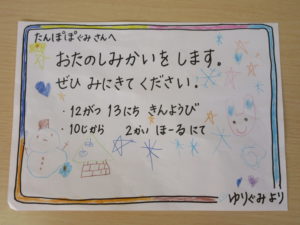 たんぽぽぐみさんへ
おたのしみかいをします。
ぜひ みにきてください。
・12がつ 13にち きんようび
・10じから 2かい ほーるにて
ゆりぐみより